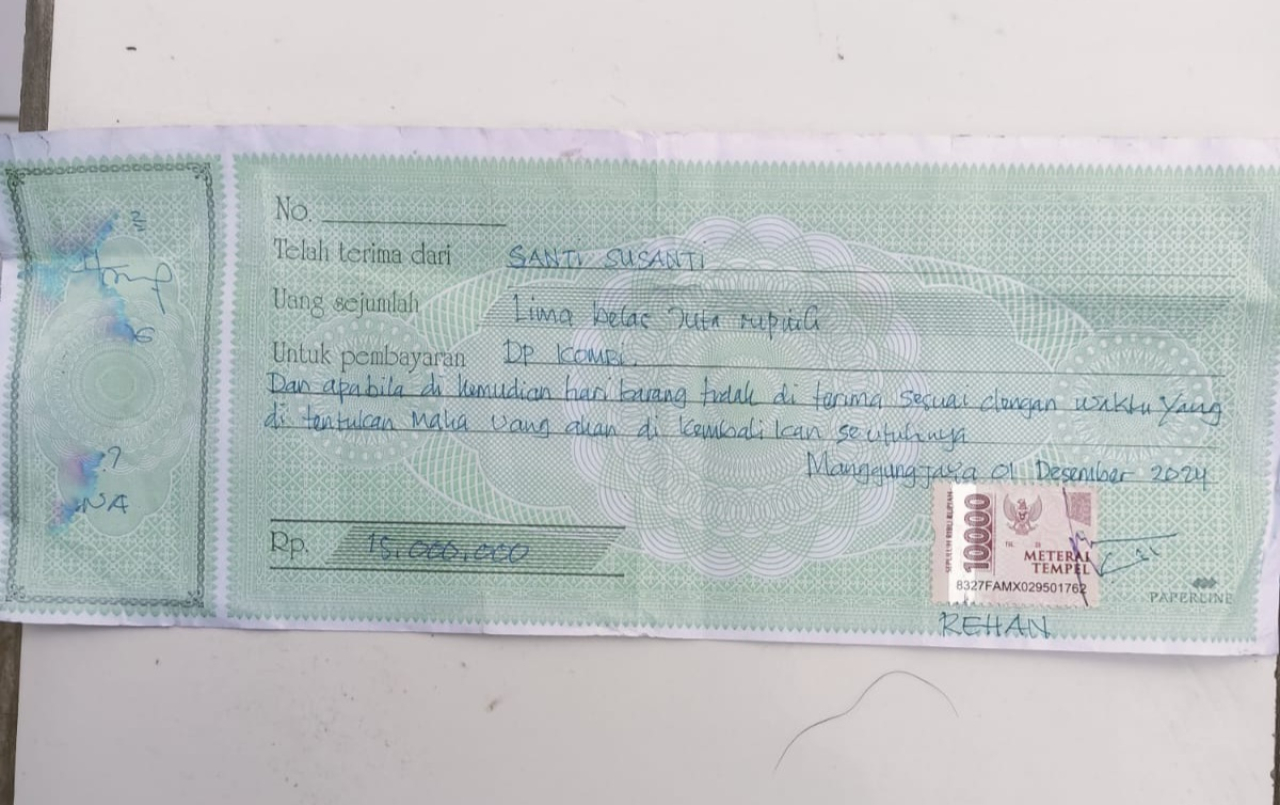 No.
Telah terima dari SANTI SUSANTI
Uang sejumlah Lima belas Juta rupiah
Untuk pembayaran DP KOMBI.
Dan apabila di kemudian hari barang tidak di terima sesuai dengan waktu yang
di tentukan Maka Uang akan di kembalikan seutuhnya
Manggungjaya 01 Desember 2024
Rp. 15.000.000
SEPULUH RIBU RUPIAH
10000
METERAI
TEMPEL
8327FAMX029501762
PAPERLINE
REHAN